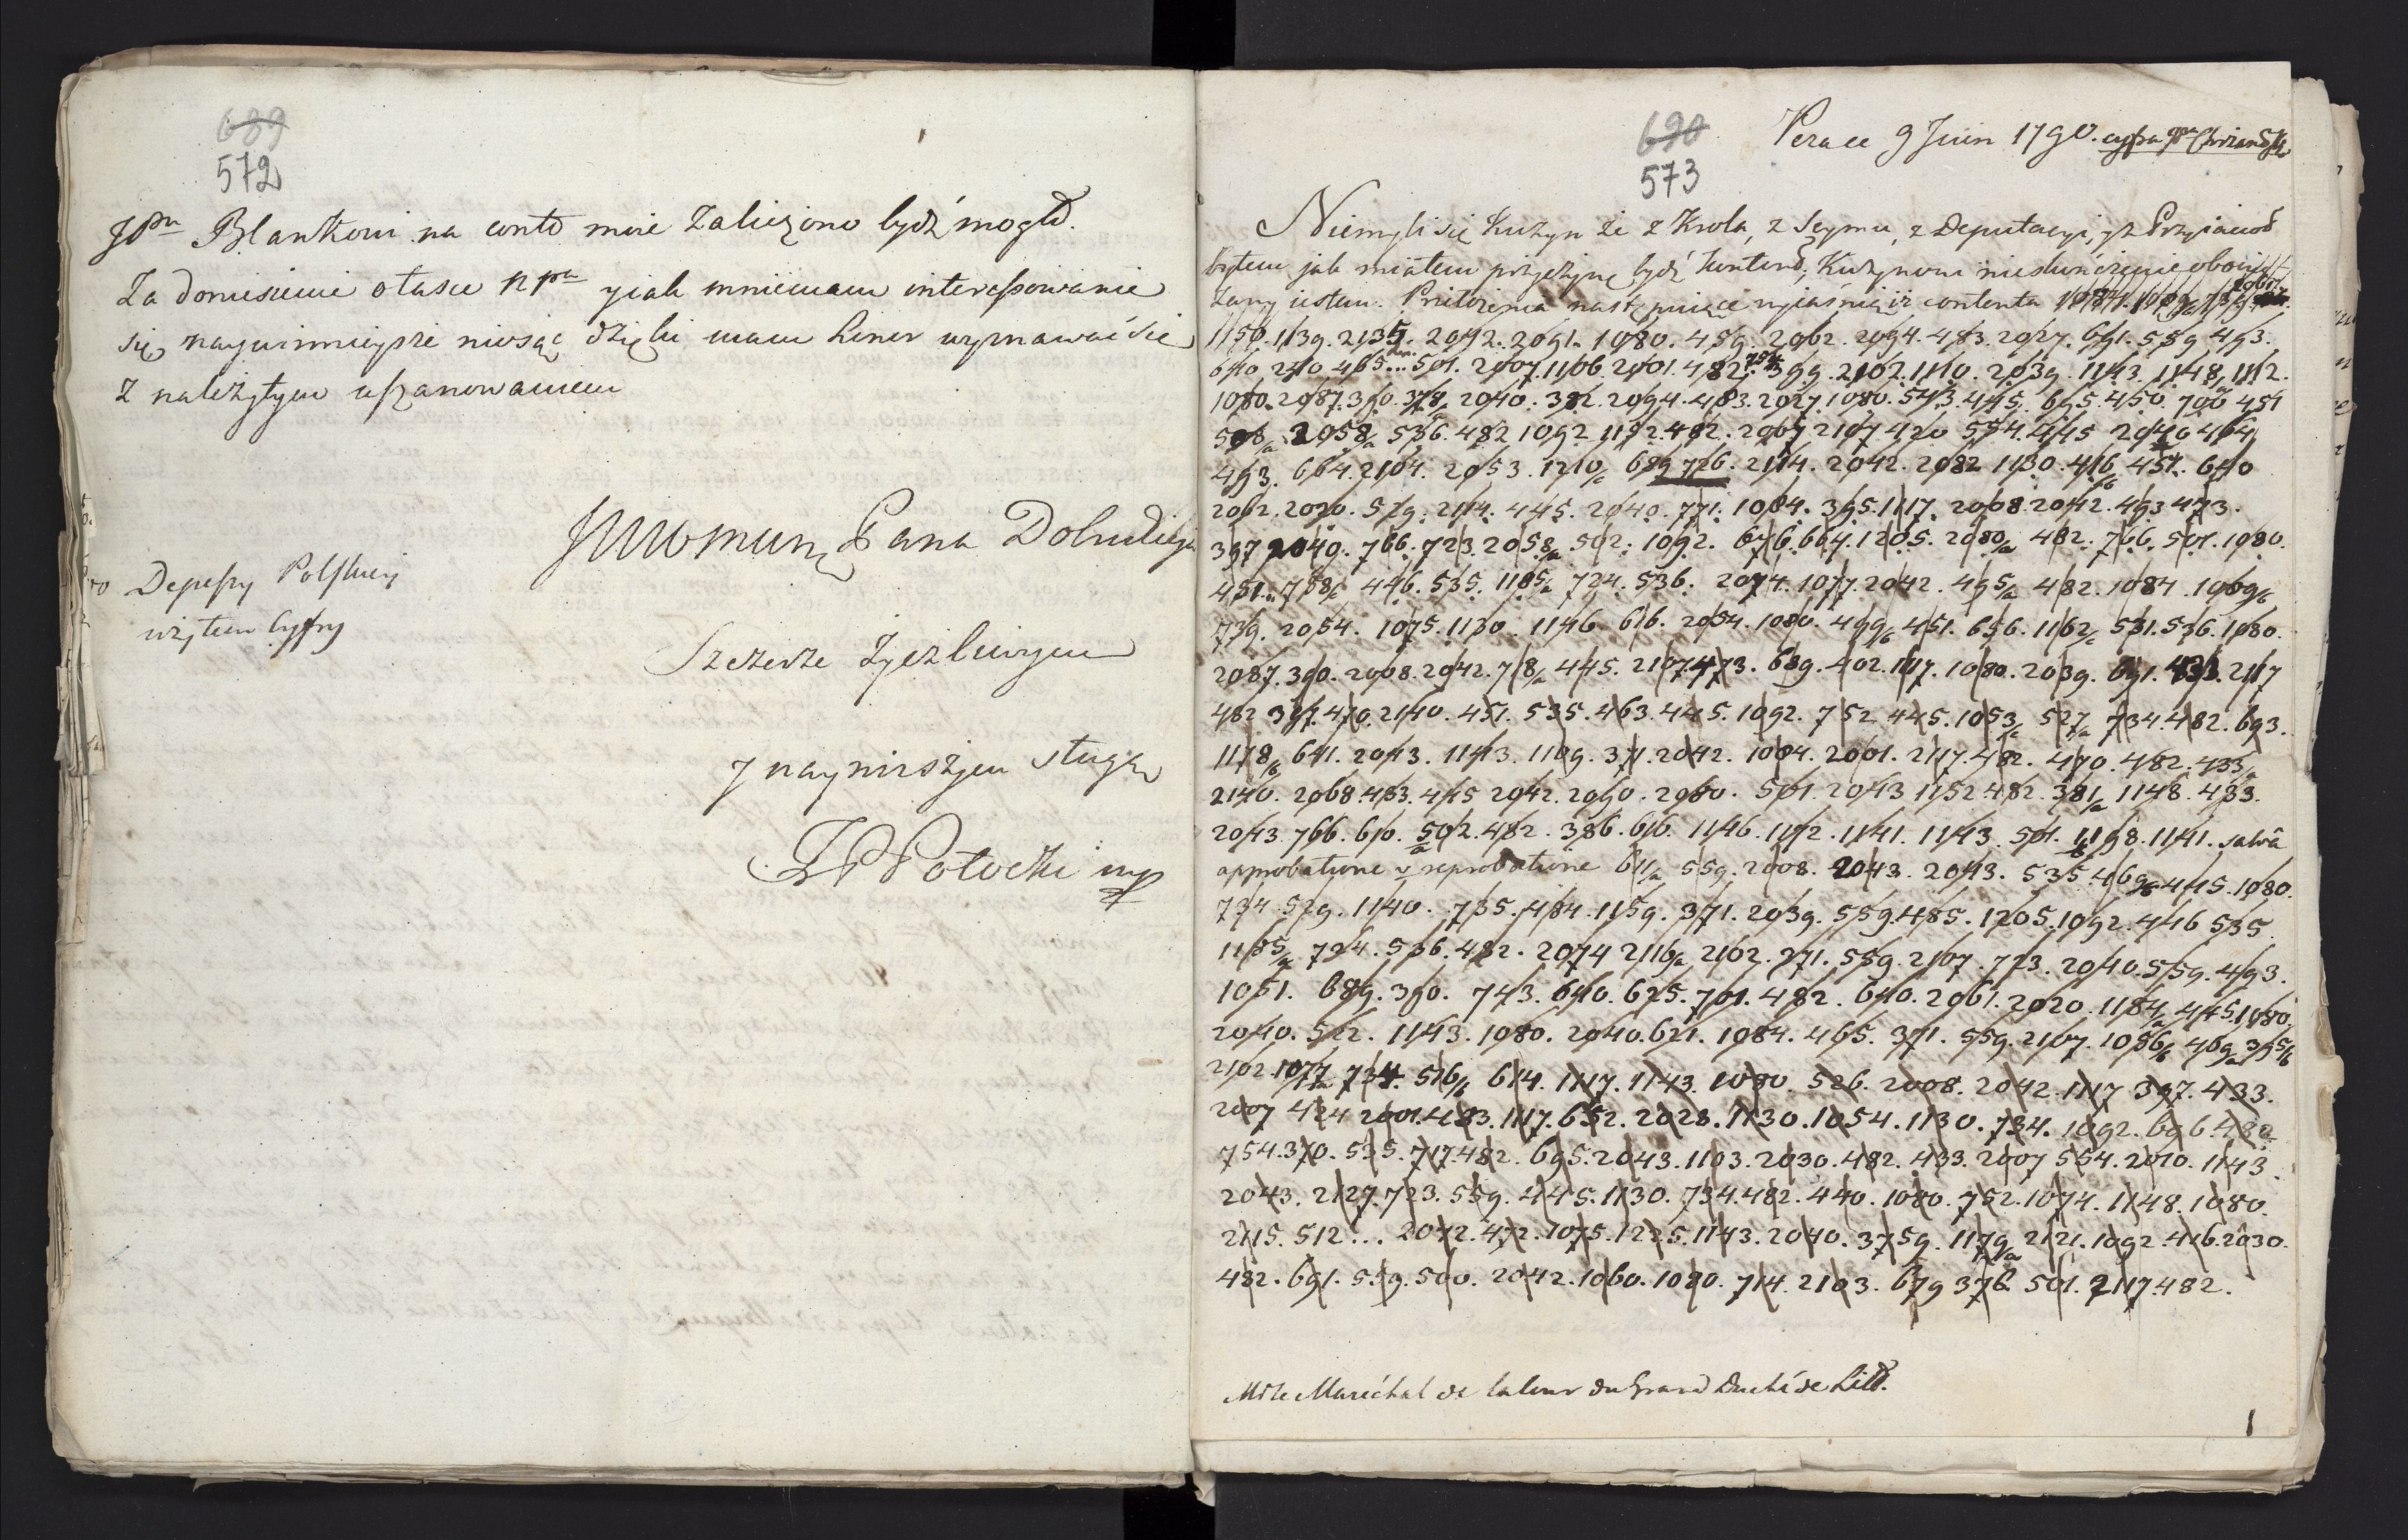 689
572
JPu Blankowi na conto moie Zaliczono bydź mogło.
Za doniesienie o łasce nPa y iak mniemam interessowanie
się nayuniżeńsze niosąc dzięki mam honor wyznawać się
z należytym uszanowaniem
JWWMMMM Pana Dobrodzieja
Depeszy Polskiey
użyłem Cyfry
Szczerze życzliwym
y naynizszym sługą
P Potocki mp
690
573
Pera ce 9 Juin 1790. cyfra JPa Chrzanowski
Niemyli się Kuzyn że z Krola, z Seymu, z Deputacyi, y z Przyiacioł
bytem jak miałem przyczynę bydź kontent, Kuzynowi nieskończenie obowią-
zany iestem. contenta 1084. 1069/a 739 2067.
1150. 1139. 2135. 2042. 2091. 1080. 459. 2062. 2094. 483. 2027. 691. 559 493.
640 2410 465... 501. 2007. 1106. 2001. 482. 754 399. 2102. 1110. 2039. 1143. 1148. 1112.
1080. 2087. 390. 378/a 2040. 382. 2094. 483. 2027. 1080. 543. 445. 695. 450. 700 451
508/a 2058/a 536. 482 1092 1152. 482. 2007 2107 420 554. 445 2040 464
493. 664. 2104. 2053. 1210/c 689 726. 2114. 2042. 2082 1130. 416/b 451. 640
2062. 2020. 529. 2114. 445. 2040. 771. 1084. 395. 1117. 2068. 2042. 493 473.
397 2040. 766. 723. 2058/a 502. 1092. 676. 664. 1205. 2080/a 482. 766. 501. 1080.
451.. 758/c 446. 535. 1185/a 724. 536. 2074. 1077. 2042. 495/a 482. 1084. 1069/b
739. 2054. 1075. 1130. 1146. 616. 2054. 1080. 499/b 451. 656. 1162/c 531. 536. 1080.
2087. 390. 2068. 2042. 718/a 445. 2107. 473. 689. 402. 1117. 1080. 2039. 691. 433. 2117
482 397. 470. 2140. 451. 535. 463. 445. 1092. 752 445. 1053/a 527/a 734. 482. 693.
1178/b 641. 2043. 1143. 1109. 371. 2042. 1084. 2001. 2117. 482. 470. 482. 433/a
2140. 2068. 483. 445 2042. 2090. 2080. 501. 2043 1152 482. 381/a 1148. 433.
2043. 766. 610. 502/a. 482. 386. 616. 1146. 1172. 1141. 1143. 501. 1198/b. 1141. salvâ
approbatione v reprobatione 611/a 559. 2008. 2043. 2043. 535. 469/b 445. 1080.
734. 529. 1140. 735. 484. 1159. 371. 2039. 559. 485. 1205. 1092. 446 535.
1185/a 724. 536. 482. 2074 2116/a 2102. 271. 559. 2107. 723. 2040. 559. 493.
1051. 689. 390. 743. 640. 625. 701. 482. 640. 2061. 2020. 1184/a 445. 1080.
2040. 522. 1143. 1080. 2040. 621. 1084. 465. 371. 559. 2107. 1086/b 469/a 395/b
2102. 1077/a 734. 516/b 614. 1117. 1143. 1080. 526. 2008. 2042. 1117 397. 433.
2007 424 2001. 483. 1117. 652. 2028. 1130. 1054. 1130. 734. 1092. 696. 482
754. 370. 535. 717. 482. 695. 2043. 1103. 2030. 482. 433. 2007 554. 2010. 1143.
2043. 2127. 723. 559. 445. 1130. 734. 482. 440. 1080. 752. 1074. 1148. 1080.
2115. 512... 2072. 472. 1075. 1225. 1143. 2040. 3759. 1179/a 2121. 1092. 416. 2030.
482. 691. 559. 500. 2042. 1060. 1080. 714. 2103. 679 376 501. 2117. 482.
Mr le Maréchal de la Cour du Grand Duché de Litt.
1